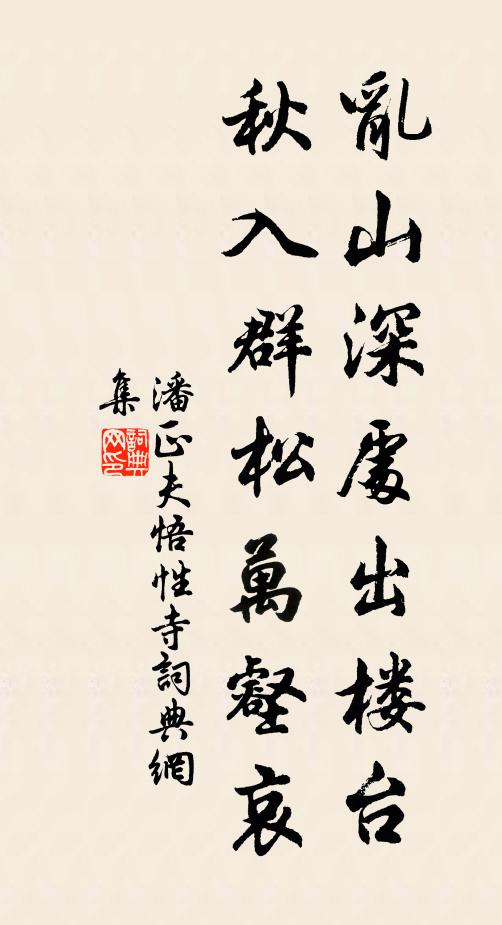 亂山深處出楼台
秋入群松萬壑哀
潘正夫悟性寺詞典網
集
詞典网印